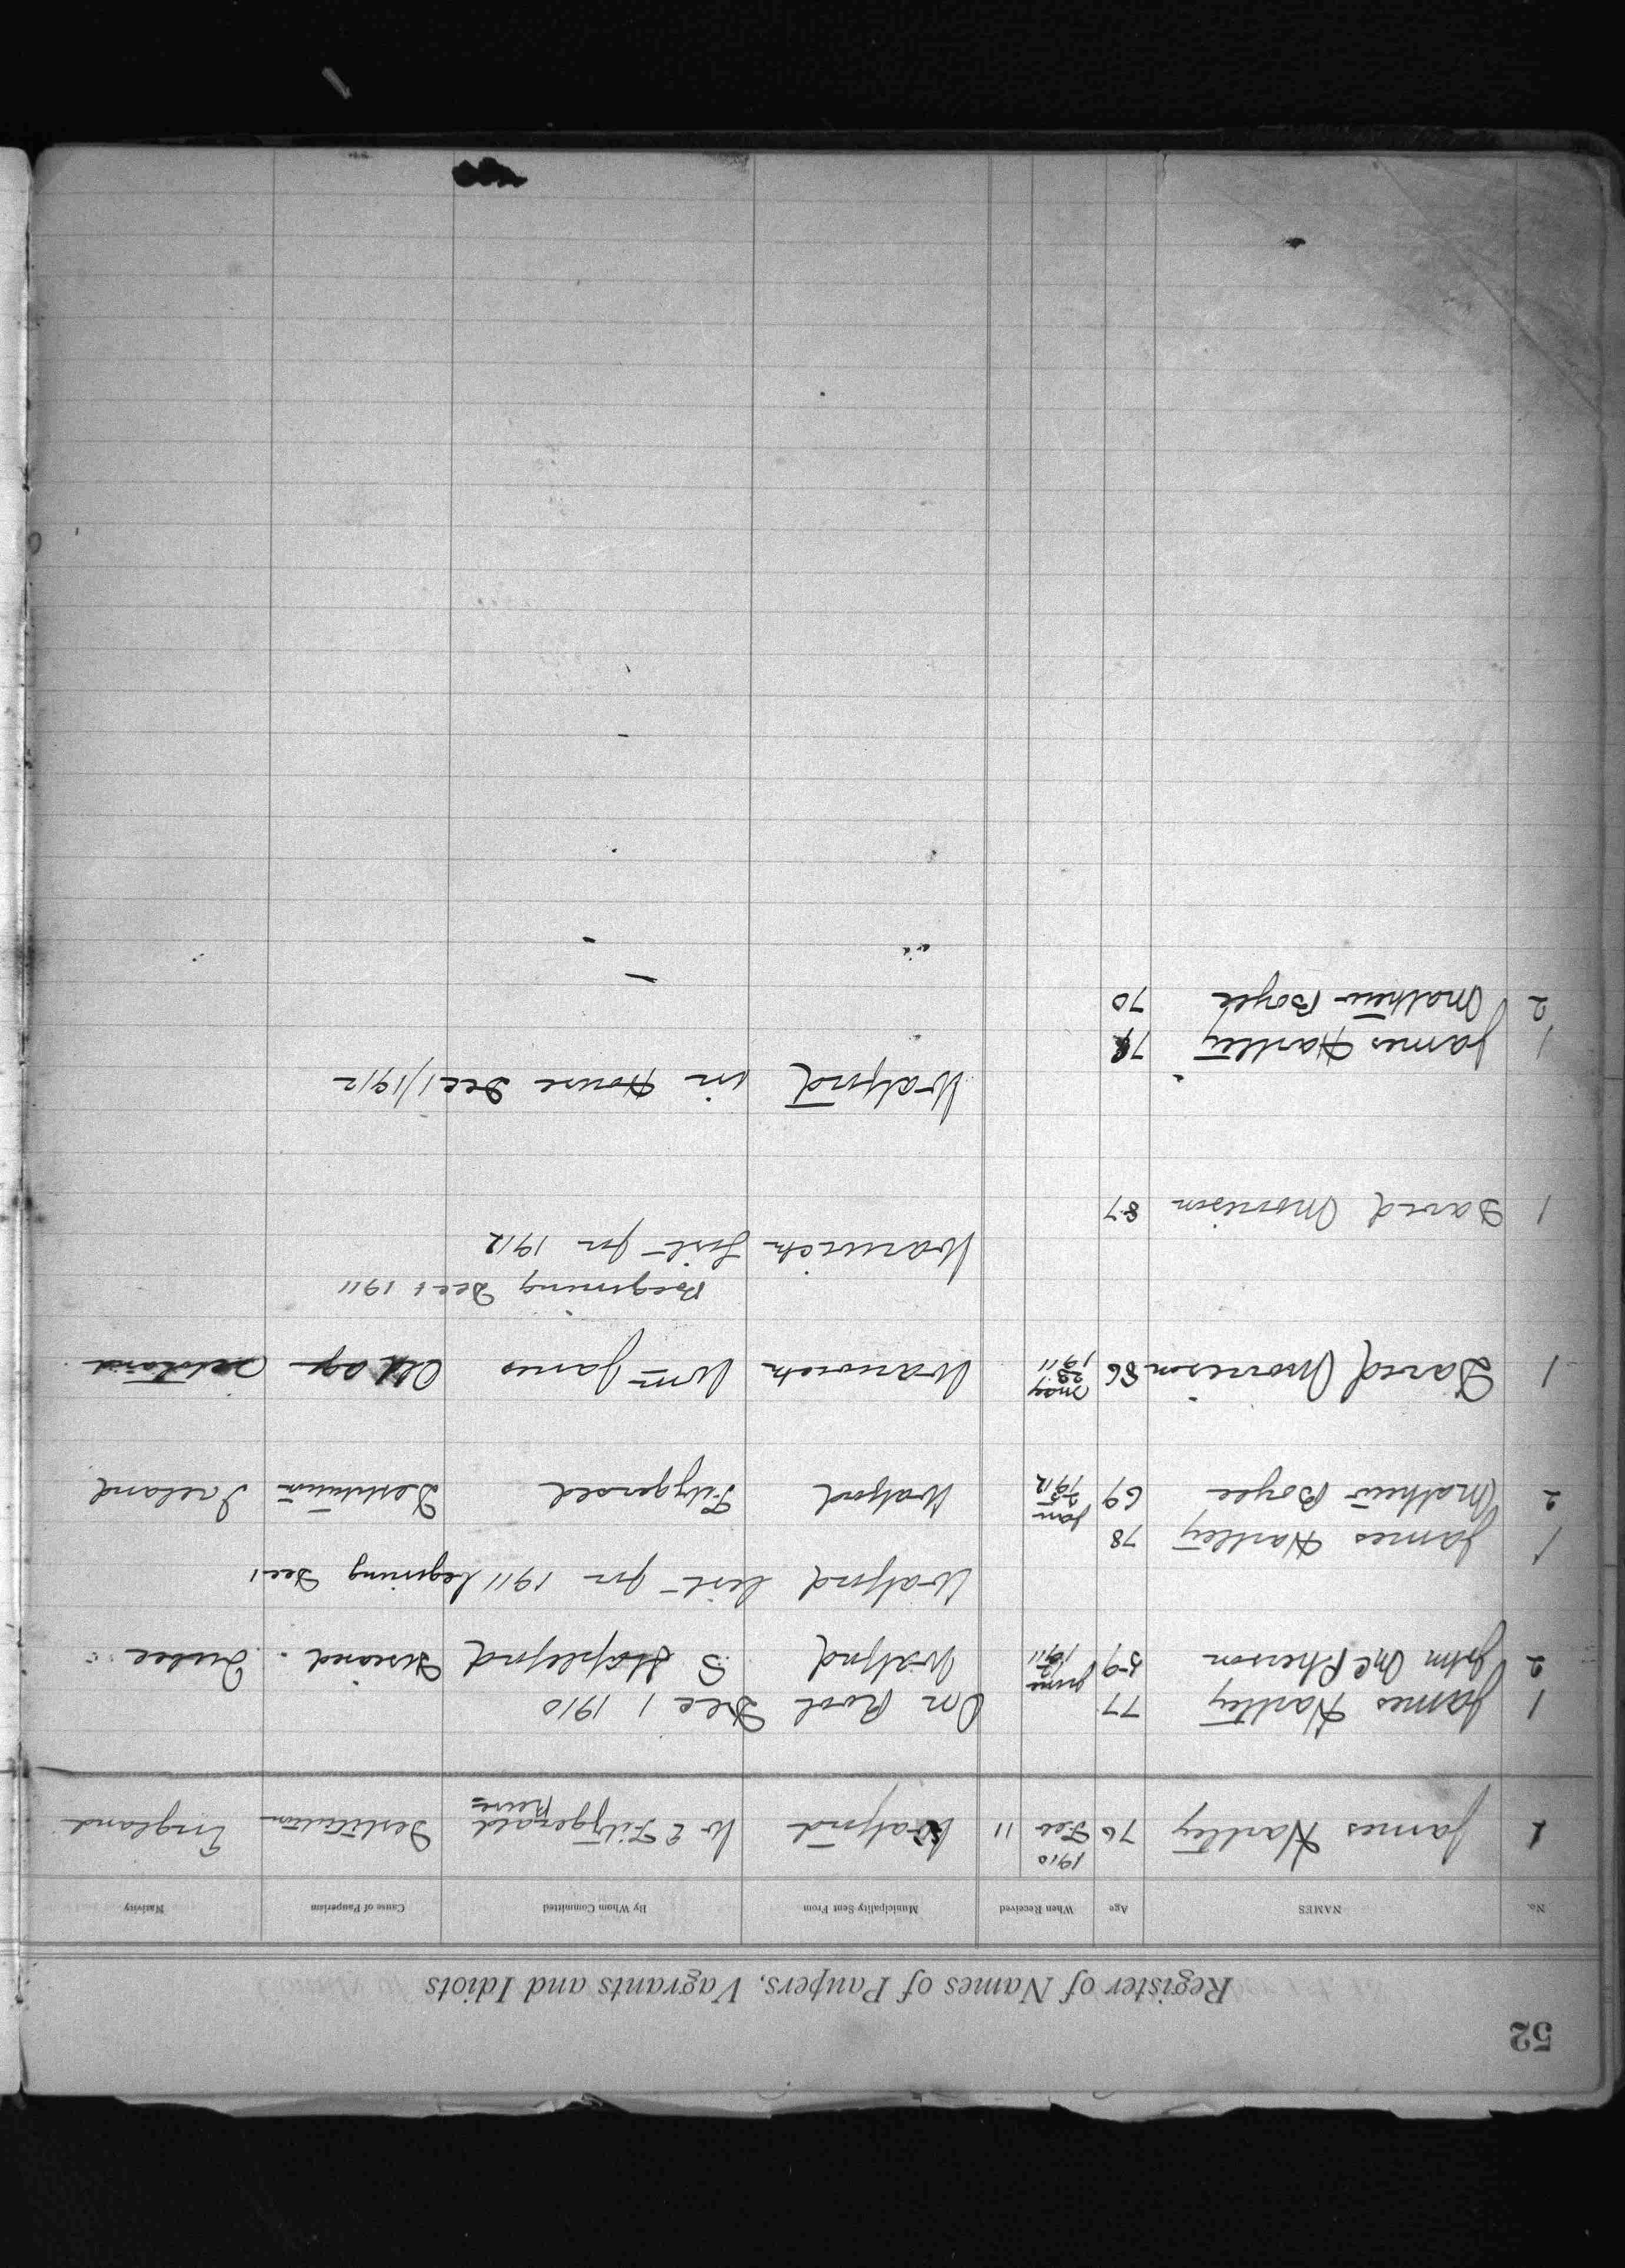 52
Register of Names of Paupers, Vagrants and Idiots
No. NAMES Age When Received Municipality Sent From By Whom Committed Cause of Pauperism Nativity
1 James Hartley 76 1910 Feb 11 Watford W E Fitzgerald Reeve Destitution England
1 James Hartley 77 On Book Dec 1 1910
2 John McPherson 59 June 1911 Watford S Stapleford Diseased
Watford list for 1911 begining Dec 1
1 James Hartley 78
2 Mathew Boyle 69 Jan 25 1912 Watford Fitzgerald Destitution Ireland
1 David Morrison 86 May 29 1911 Warwick Wm James Old age
Begining Dec 1 1911
Warwick List for 1912
1 David Morrison 87
Watford in House Dec 1/1912
1 James Hartley
2 Mathew Boyle 70 "